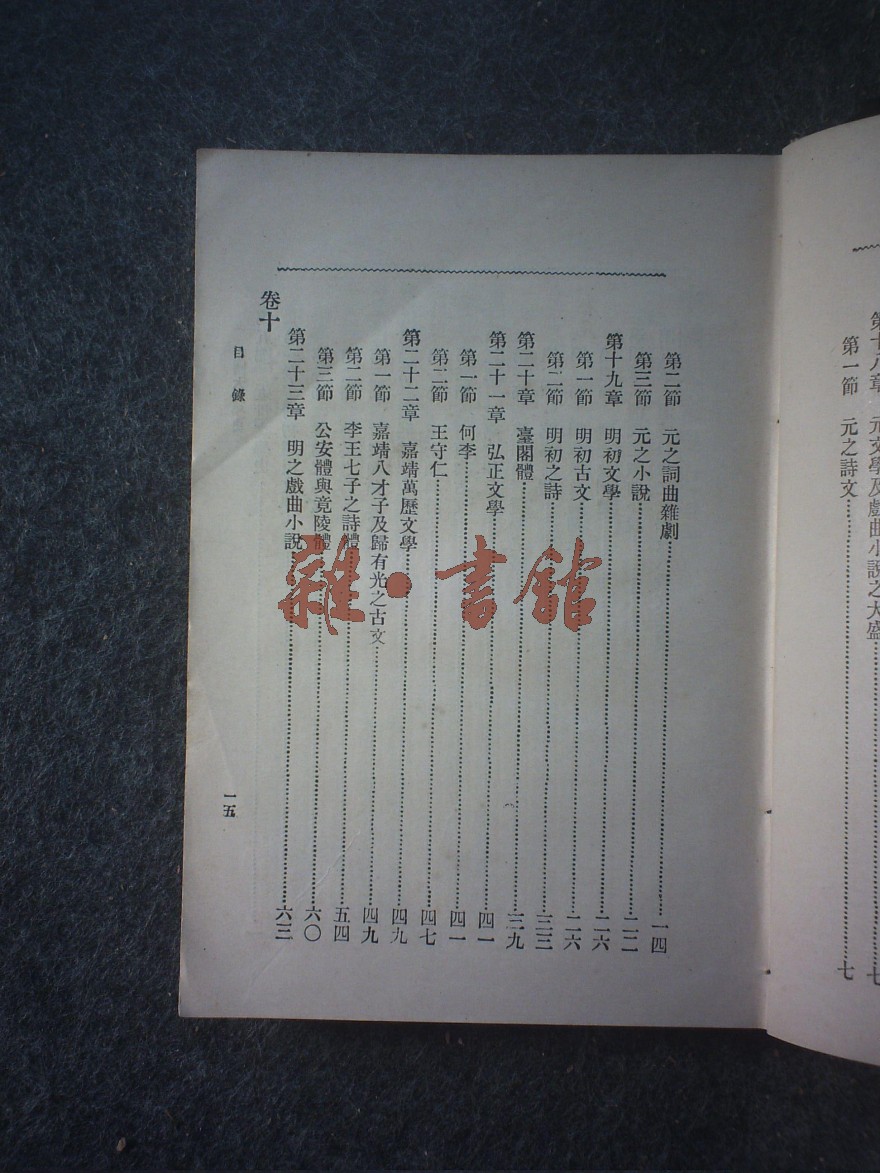 第十八章　元文學及戲曲小說之大盛……七
第一節　元之詩文……七
第二節　元之詞曲雜劇……一四
第三節　元之小說……二二
第十九章　明初文學……二六
第一節　明初古文……二六
第二節　明初之詩……三三
第二十章　臺閣體……三九
第二十一章　弘正文學……四一
第一節　何李……四一
第二節　王守仁……四七
第二十二章　嘉靖萬歷文學……四九
第一節　嘉靖八才子及歸有光之古文……四九
第二節　李王七子之詩體……五四
第三節　公安體與竟陵體……六〇
第二十三章　明之戲曲小說……六三
卷十
目錄　一五
雜·書館